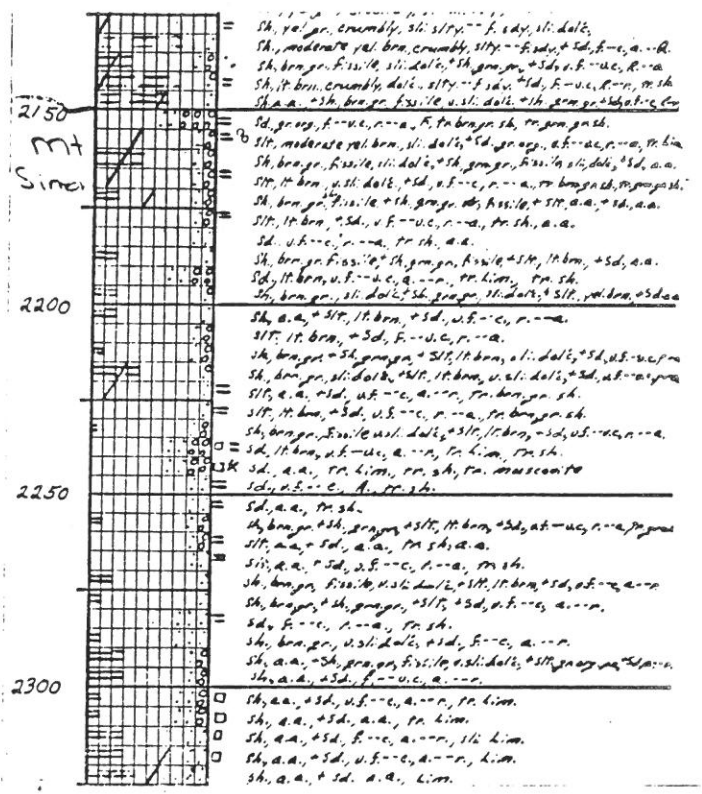 Sh, yel. gr., crumbly, sli. slty. -- f. sdy, sli. dolc,
Sh, moderate yel. brn, crumbly, slty. -- f. sdy, + Sd, f. -- c, a. -- R.
Sh, brn. gr. fissile, sli. dolc, + Sh, grn. gr., + Sd, v.f. -- v.c, R. -- a
Sh, lt. brn., crumbly, dolc, slty. -- f. sdy. + Sd, f. -- v.c, R. -- r., tr. sh
Sh, a.a. + Sh, brn. gr. fissile, v. sli. dolc + Sh, grn. gr. + Sd, v.f. -- c,
2150
Sd, gr. org., f. -- v.c., r. -- a., tr. brn. gr. sh, tr. grn. gn. sh.
mt
Slt, moderate yel. brn., sli. dolc, + Sd, gr. org., v.f. -- vc, r. -- a, tr. Lim
Sh, brn. gr., fissile, sli. dolc, + Sh, grn. gr., fissile, sli. dolc, + Sd, a.a.
Sinai
Slt, lt. brn, v. sli. dolc, + Sd, v.f. -- c, r. -- a, tr. brn. gn. sh,
Sh, brn. gr. fissile + Sh, grn. gr. fissile, + Slt, a.a., + Sd, a.a.
Slt, lt. brn, + Sd, v.f. -- v.c, r. -- a, tr. sh, a.a.
Sd, v.f. -- c, r. -- a, tr. sh, a.a.
Sh, brn. gr. fissile, + Sh, grn. gr., fissile, + Slt, lt. brn, + Sd, a.a.
Sd, lt. brn, v.f. -- v.c, a. -- r., tr. Lim, tr. sh.
Sh, brn. gr., sli. dolc, + Sh, grn. gr., sli. dolc, + Slt, yel. brn, + Sd aa
2200
Sh, a.a, + Slt, lt. brn, + Sd, v.f. -- c, r. -- a.
Slt, lt. brn, + Sd, f. -- v.c, r. -- a.
Sh, brn. gr. + Sh, grn. gn, + Slt, lt. brn, sli. dolc, + Sd, v.f. -- v.c,
Sh, brn. gr., sli. dolc, + Slt, lt. brn, v. sli. dolc, + Sd, v.f. -- v.c,
Slt, a.a, + Sd, v.f. -- c, a. -- r, tr. brn. gr. sh.
Slt, lt. brn, + Sd, v.f. -- c, r. -- a, tr. brn. gr. sh.
Sh, brn. gr., fissile v. sli. dolc, + Slt, lt. brn, + Sd, v.f. -- v.c, r. -- a.
Sd, lt. brn, v.f. -- v.c, a. -- r, tr. Lim, tr. sh.
Sd, a.a, tr. Lim, tr. sh, tr. muscovite
2250
Sd, v.f. -- c, A, tr. sh.
Sd, a.a, tr. sh.
Sh, brn. gr. + Sh, grn. gn, + Slt, lt. brn, + Sd, v.f. -- v.c, r. -- a,
Slt, a.a, + Sd, a.a, tr. sh, a.a.
a.a, + Sd, v.f. -- c, r. -- a, tr. sh.
Sh, brn. gr, fissile, v. sli. dolc, + Slt, lt. brn, + Sd, v.f. -- c, a. -- r.
Sh, brn. gr, + Sh, grn. gr., + Slt, + Sd, v.f. -- c, a. -- r.
Sd, f. -- c, r. -- a, tr. sh.
Sh, brn. gr., v. sli. dolc, + Sd, f. -- c, a. -- r.
Sh, a.a, + Sh, grn. gr, fissile, v. sli. dolc, + Slt,
2300
Sh, a.a, + Sd, f. -- v.c, a. -- r.
Sh, a.a, + Sd, v.f. -- c, a. -- r, tr. Lim.
Sh, a.a, + Sd, a.a, tr. Lim.
Sh, a.a, + Sd, f. -- c, a. -- r, sli Lim.
Sh, a.a, + Sd, v.f. -- c, a. -- r, Lim.
Sh, a.a, + Sd. a.a, Lim.